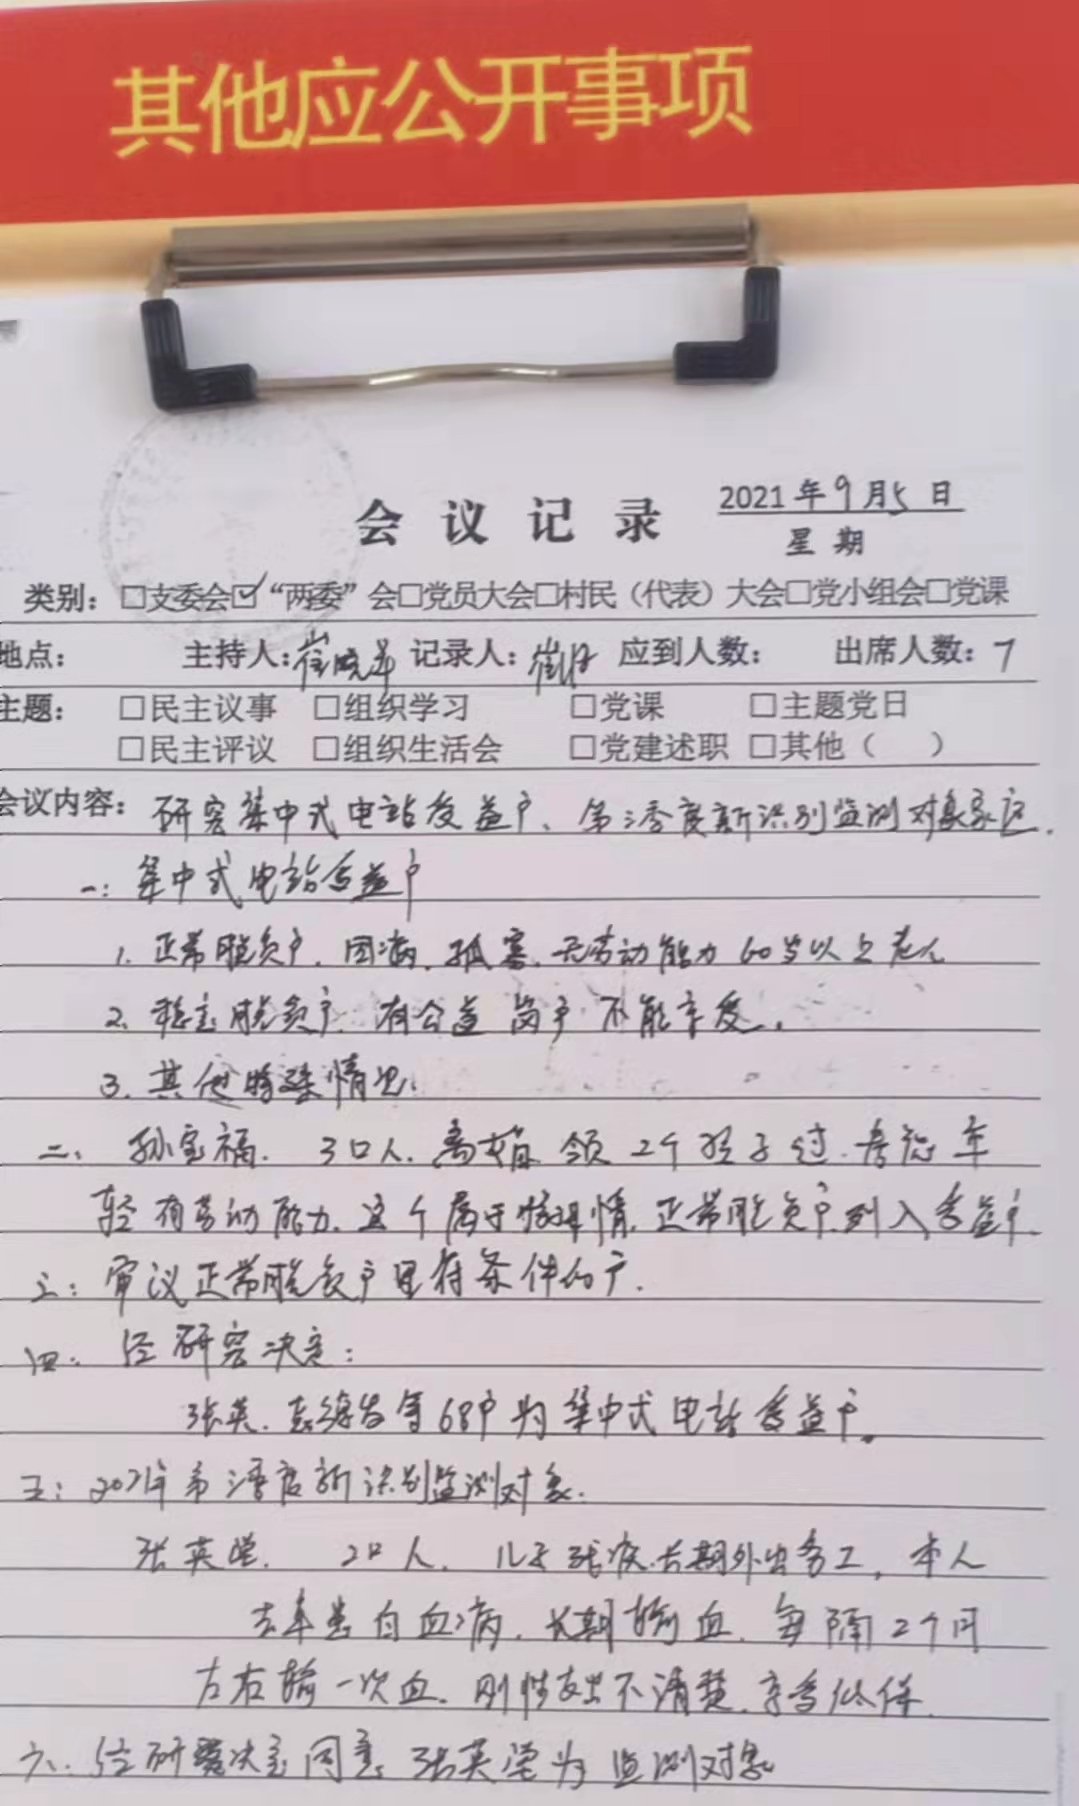 其他应公开事项
会议记录
2021年9月5日
星期
类别：□支委会☑“两委”会□党员大会□村民（代表）大会□党小组会□党课
地点： 主持人：崔晓 记录人：崔 应到人数： 出席人数：7
主题： □民主议事 □组织学习 □党课 □主题党日
□民主评议 □组织生活会 □党建述职 □其他（ ）
会议内容：研究集中式电站受益户、第三季度新识别监测对象家庭.
一：集中式电站受益户
1. 正常脱贫户. 因病. 孤寡. 无劳动能力 60岁以上老人
2. 稳定脱贫户. 有公益岗户不能享受.
3. 其他特殊情况.
二、孙宝福. 3口人. 离婚 领2个孩子过. 考虑年
轻有劳动能力. 这个属于特殊情. 正常脱贫户列入受益户.
三：审议正常脱贫户里符条件的户.
四：经研究决定：
张英. 等68户为集中式电站受益户。
五：2021年第三季度新识别监测对象.
张英堂. 2口人. 儿子残疾. 长期外出务工，本人
去年患白血病. 长期输血. 每隔2个月
左右输一次血. 刚性支出不清楚. 享受低保.
六、经研究决定同意张英堂为监测对象